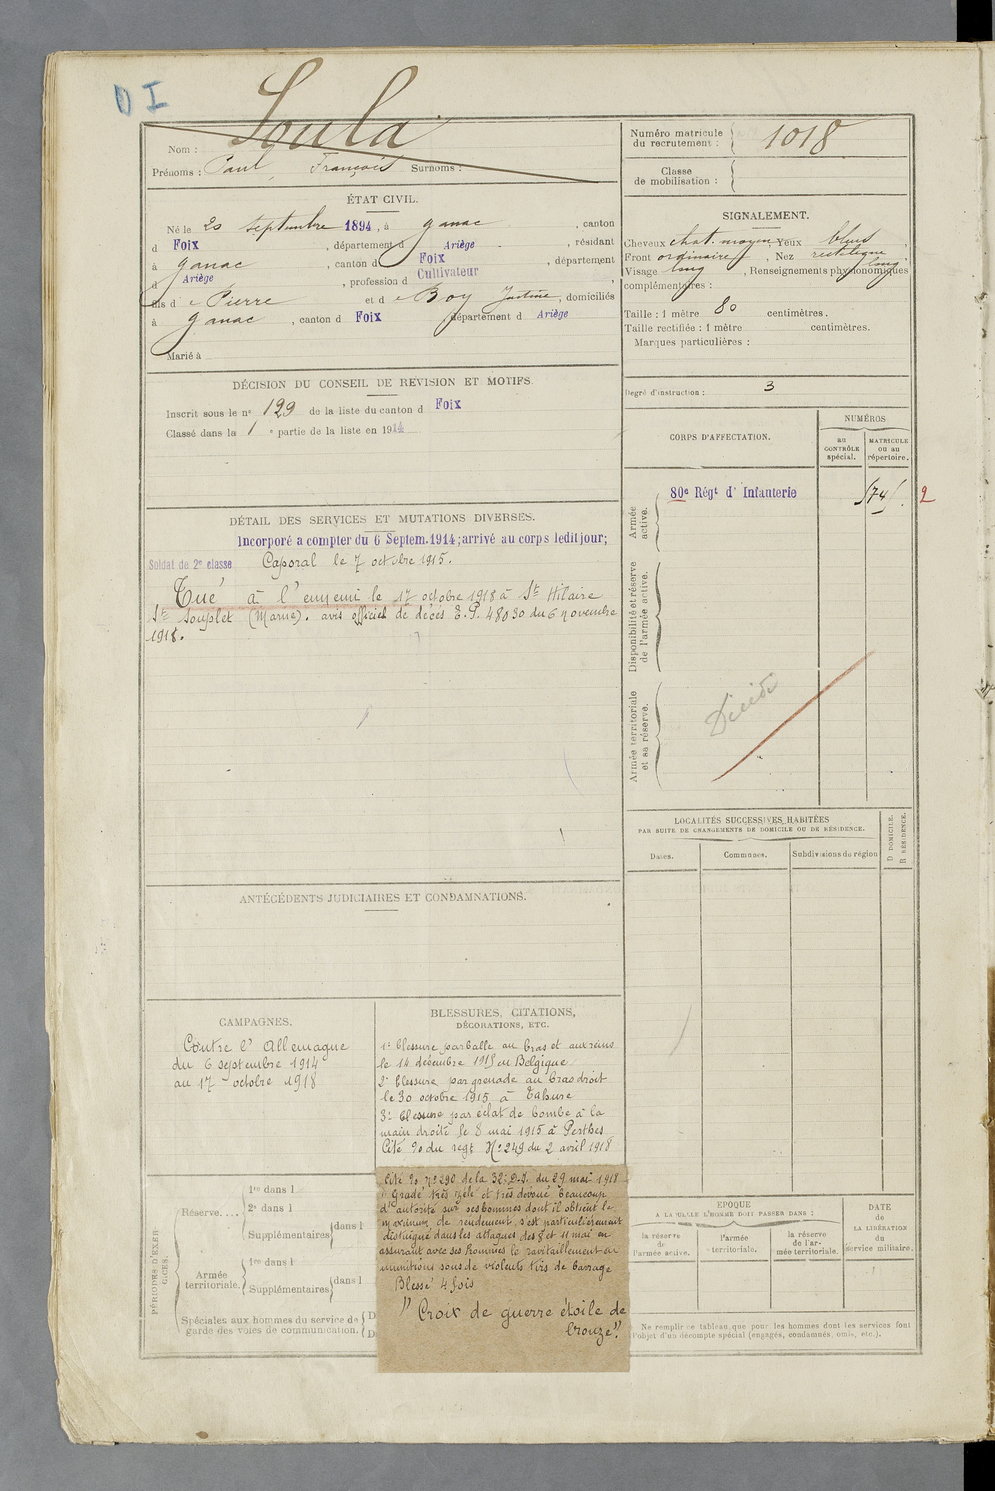 D I
Nom : Soula
Prénoms : Paul, François Surnoms :
ÉTAT CIVIL.
Né le 20 septembre 1894, à Ganac, canton
d Foix, département d Ariège, résidant
à Ganac, canton d Foix, département
d Ariège, profession d Cultivateur,
fils d e Pierre et d e Boy Justine, domiciliés
à Ganac, canton d Foix département d Ariège
Marié à
DÉCISION DU CONSEIL DE RÉVISION ET MOTIFS.
Inscrit sous le n° 129 de la liste du canton d Foix
Classé dans la 1 e partie de la liste en 1914
DÉTAIL DES SERVICES ET MUTATIONS DIVERSES.
Incorporé a compter du 6 Septem. 1914; arrivé au corps ledit jour;
Soldat de 2e classe Caporal le 7 octobre 1915.
Tué à l'ennemi le 17 octobre 1918 à St Hilaire
Ste Souplet (Marne). avis officiel de décès E.P. 48030 du 6 novembre
1918.
ANTÉCÉDENTS JUDICIAIRES ET CONDAMNATIONS.
CAMPAGNES.
Contre l'Allemagne
du 6 septembre 1914
au 17 octobre 1918
BLESSURES, CITATIONS,
DÉCORATIONS, ETC.
1° blessure par balle au bras et aux reins
le 14 décembre 1915 en Belgique
2° blessure par grenade au bras droit
le 30 octobre 1915 à Tahure
3° blessure par éclat de bombe à la
main droite le 8 mai 1915 à Perthes
Cité % du regt N° 249 du 2 avril 1918
Cité % N° 290 de la 32e D.I. du 29 mai 1918
" Gradé très zélé et très dévoué beaucoup
d'autorité sur ses hommes dont il obtient le
maximum de rendement, s'est particulièrement
distingué dans les attaques des 8 et 11 mai en
assurant avec ses hommes le ravitaillement en
munitions sous de violents tirs de barrage
Blessé 4 fois
" Croix de guerre étoile de
bronze".
PÉRIODES D'EXERCICES.
Réserve....
1re dans l
2e dans l
Supplémentaires dans l
Armée territoriale.
1re dans l
Supplémentaires dans l
Spéciales aux hommes du service de D
garde des voies de communication. D
Numéro matricule
du recrutement : 1018
Classe
de mobilisation :
SIGNALEMENT.
Cheveux chat. moyen Yeux bleus
Front ordinaire, Nez rectiligne
long
Visage long, Renseignements physionomiques
complémentaires :
Taille : 1 mètre 80 centimètres.
Taille rectifiée : 1 mètre centimètres.
Marques particulières :
Degré d'instruction : 3
CORPS D'AFFECTATION.
NUMÉROS
au
CONTRÔLE
spécial.
MATRICULE
ou au
répertoire.
Armée
active.
80e Régt d'Infanterie
2
Disponibilité et réserve
de l'armée active.
Armée territoriale
et sa réserve.
Décédé
LOCALITÉS SUCCESSIVES HABITÉES
PAR SUITE DE CHANGEMENTS DE DOMICILE OU DE RÉSIDENCE.
D. DOMICILE.
R. RÉSIDENCE.
Dates. Communes. Subdivisions de région
ÉPOQUE
A LAQUELLE L'HOMME DOIT PASSER DANS :
la réserve
de
l'armée active.
l'armée
territoriale.
la réserve
de l'ar-
mée territoriale.
DATE
de
LA LIBÉRATION
du
service militaire.
Ne remplir ce tableau que pour les hommes dont les services font
l'objet d'un décompte spécial (engagés, condamnés, omis, etc.).